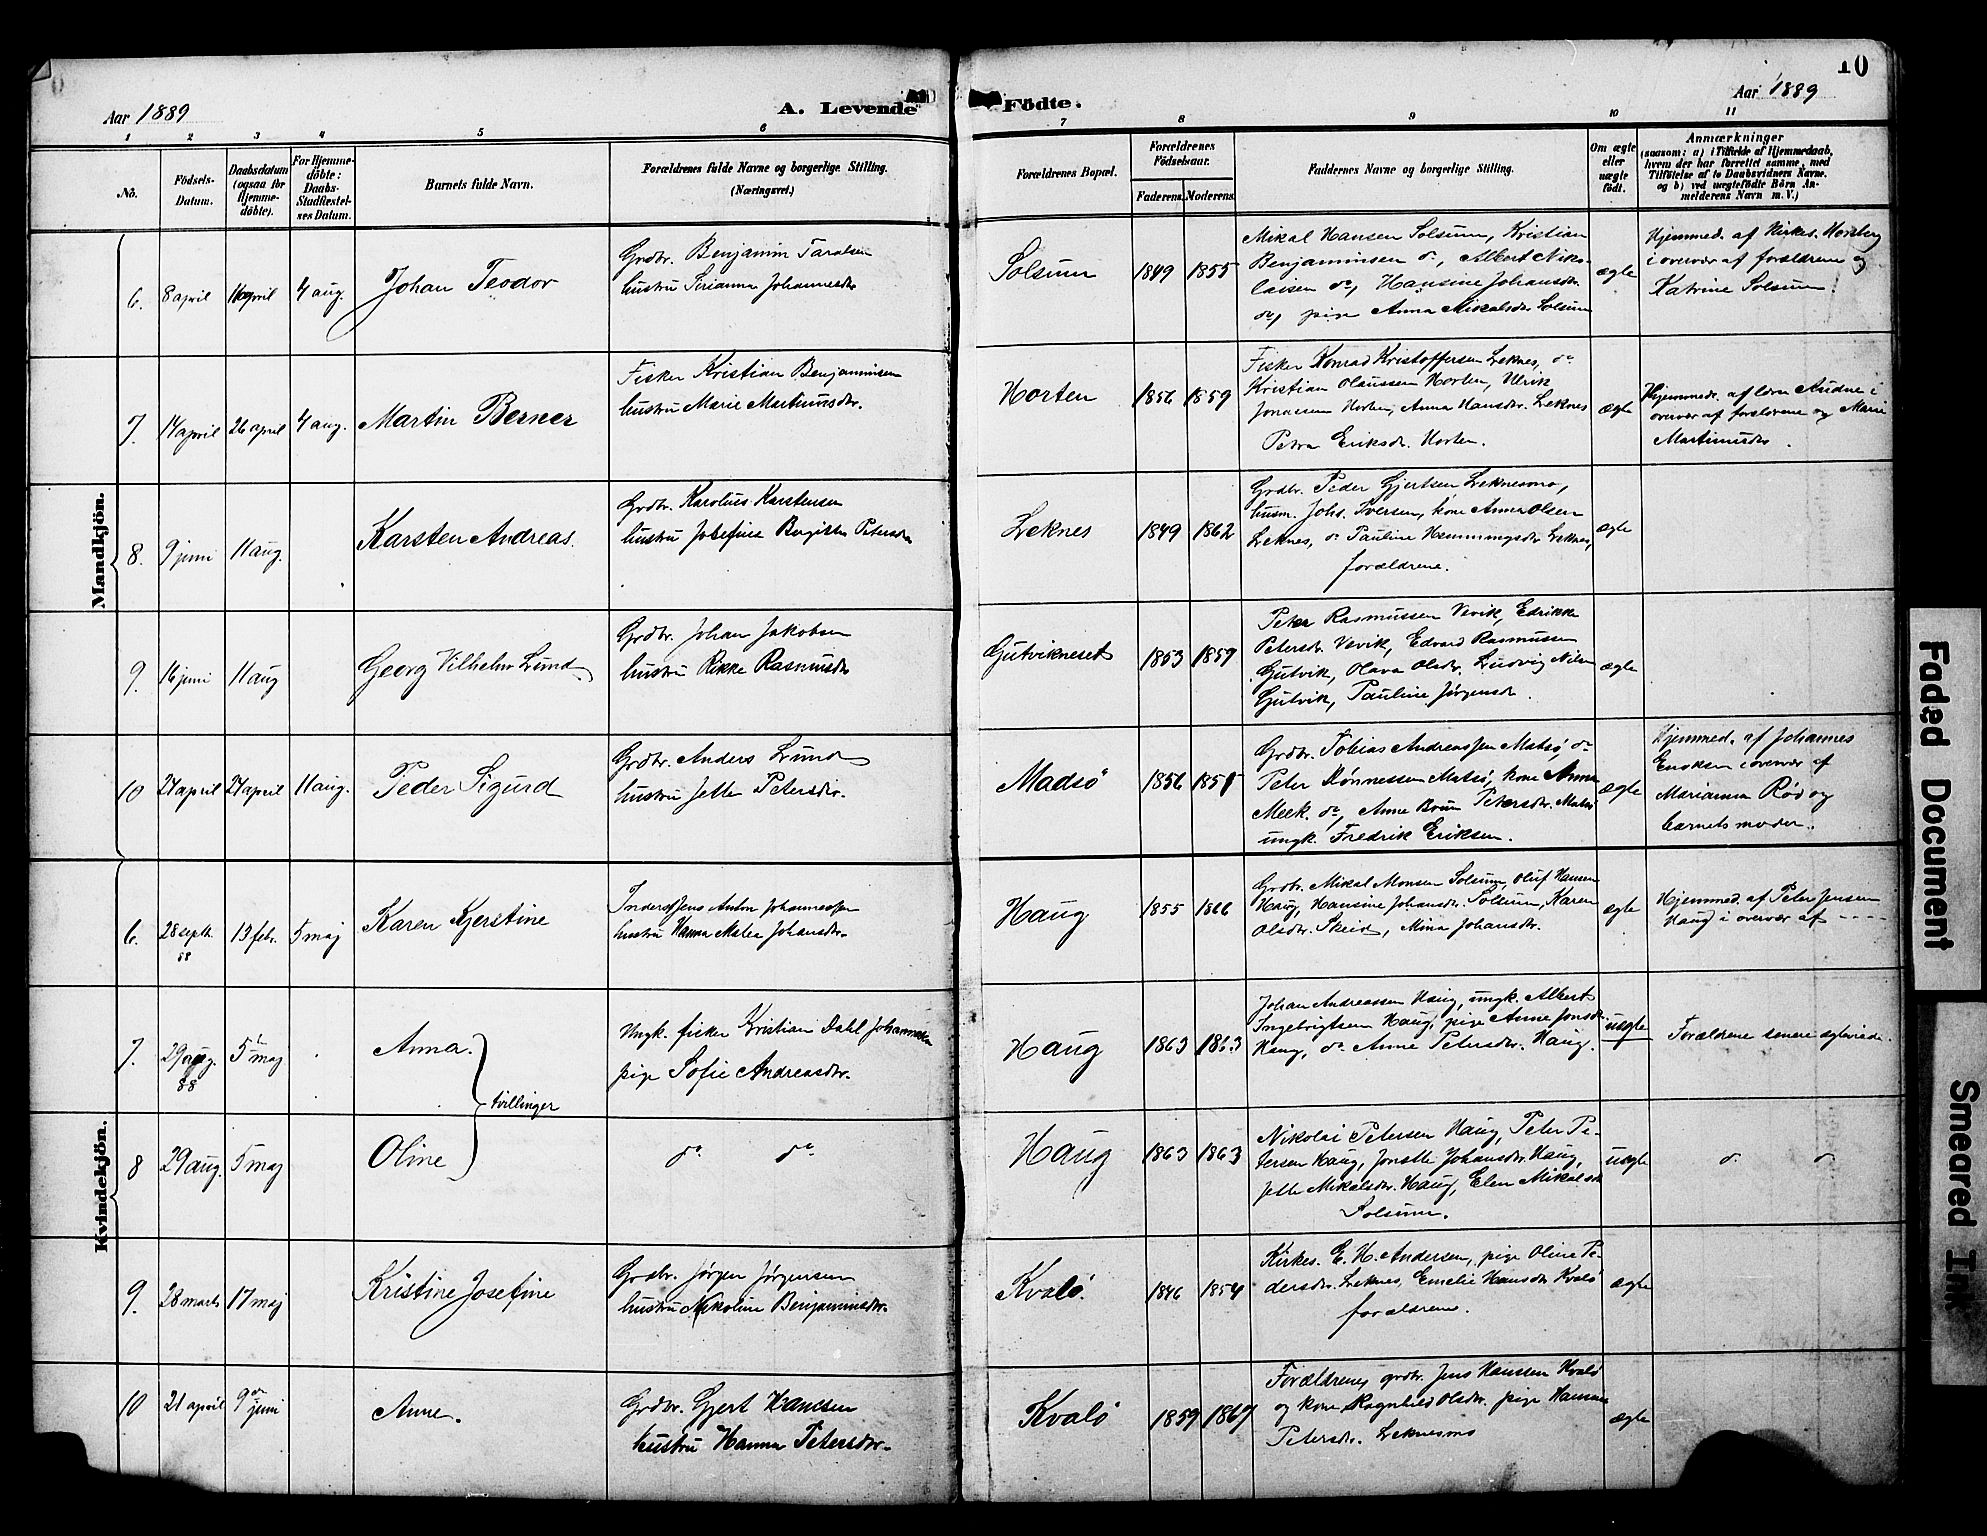 10
Aar 1889
A. Levende
Födte.
Aar 1889
1 2 3 4 5 6 7 8 9 10 11
No.
Födsels-
Datum.
Daabsdatum
(ogsaa for
Hjemme-
döbte).
For Hjemme-
döbte:
Daabs-
Stadfæstel-
ses Datum.
Barnets fulde Navn.
Forældrenes fulde Navne og borgerlige Stilling.
(Næringsvei.)
Forældrenes Bopæl.
Forældrenes
Födselsaar.
Faderens. Moderens.
Faddernes Navne og borgerlige Stilling.
Om ægte
eller
uægte
født.
Anmærkninger
(saasom: a) i Tilfælde af Hjemmedaab,
hvem der har forrettet samme, med
Tilföielse af to Daabsvidners Navne.
og b) ved uægtefödte Börn An-
melderens Navn m. V.)
Mandkjön.
6. 8 april 4 aug. Johan Teodor
Grdbr. Benjamin Taralsen
hustru Sirianna Johannesdr
Solsum 1849 1855
Mikal Hansen Solsum, Kristian
Benjaminsen do, Albert Niko-
laisen do, Hansine Johansdr.
do, pige Anna Mikalsdr Solsum
ægte
Hjemmed. af Kirkes. Horsberg
i overvær af forældrene og
Katrine Solsum.
7. 14 april 26 april 4 aug. Martin Berner
Fisker Kristian Benjaminsen
hustru Marie Martinusdr.
Horten 1856 1859
Fisker Konrad Kristoffersen Leknes, do
Kristian Olaussen Horten, Ulrik
Jonassen Horten, Anna Hansdr. Leknes
Petra Eriksdr. Horten.
ægte
Hjemmedr. af i
overvær af forældrene og Marie
Martinusdr.
8. 9 juni 11 aug. Karsten Andreas.
Grdbr. Karolius Karstensen
hustru Josefine Birgitte Petersdr
Leknes 1849 1862
Grdbr. Peder Gjertsen Leknesmo,
husm. Johs. Iversen, kone Anna Olsen
Leknes, do Pauline Hemmingsdr Leknes,
forældrene.
ægte
9. 16 juni 11 aug Georg Vilhelm Lund
Grdbr. Johan Jakobsen
hustru Rikke Rasmusdr
Gutvikneset 1853 1859
Peter Rasmussen Vevik, Edrikke
Petersdr Vevik, Edvard Rasmussen
Gutvik, Olava Olsdr. Ludvig Nilsen
Gutvik, Pauline Jørgensdr.
ægte
10 24 april 24 april 11 aug. Peder Sigurd
Grdbr. Anders Lund
hustru Jette Petersdr.
Madsö 1856 1851
Grdbr. Tobias Andreassen Matsö, do
Peter Rønnessen Matsö, kone Anna
Meek do, Anne Petersdr. Matsö
ungk. Fredrik Eriksen.
ægte
Hjemmed. af Johannes
Enoksen i overvær af
Marianna Rød og
barnets moder.
Kvindekjön.
6. 28 septb. 88 13 febr. 5 maj Karen Kjerstine
Inderst Jens Anton Johannessen
hustru Hanna Matea Johansdr.
Haug 1855 1866
Grdbr. Mikal Monsen Solsum, Oluf Hansen
Haug, Hansine Johansdr. Solsum, Karen
Olsdr. Skeid, Mina Johansdr.
ægte
Hjemmed. af Peter Jensen
Haug i overvær af - - - -
7. 29 aug. 88 5 maj Anna.
tvillinger
Ungk. fisker Kristian Dahl Johannesen
pige Sofie Andreasdr.
Haug 1863 1863
Johan Andreassen Haug, ungk. Albert
Ingebrigtsen Haug, pige Anne Jonsdr.
Haug, do Anne Petersdr. Haug.
uægte
Forældrene senere ægteviede.
8 29 aug. 5 maj Oline
do do
Haug 1863 1863
Nikolai Petersen Haug, Peter Pe-
tersen Haug, Jonette Johansdr. Haug,
Jette Mikalsdr. Haug, Elen Mikalsdr
Solsum.
uægte
do do
9. 28 marts 17 maj Kristine Josefine
Grdbr. Jørgen Jørgensen
hustru Nikoline Benjaminsdr.
Kvalö. 1846 1854
Kirkes. E. H. Andersen, pige Oline Pe-
dersdr. Leknes, Emelie Hansdr. Kvalö
forældrene.
ægte
10 21 april 9de juni Anne.
Grdbr. Gjert Hansen
hustru Hanna Petersdr.
Kvalö 1859 1867
Forældrene, grdbr. Jens Hansen Kvalö
og kone Ragnhild Olsdr. pige Hanna
Petersdr. Leknesmo
ægte
Faded Document
Smeared Ink